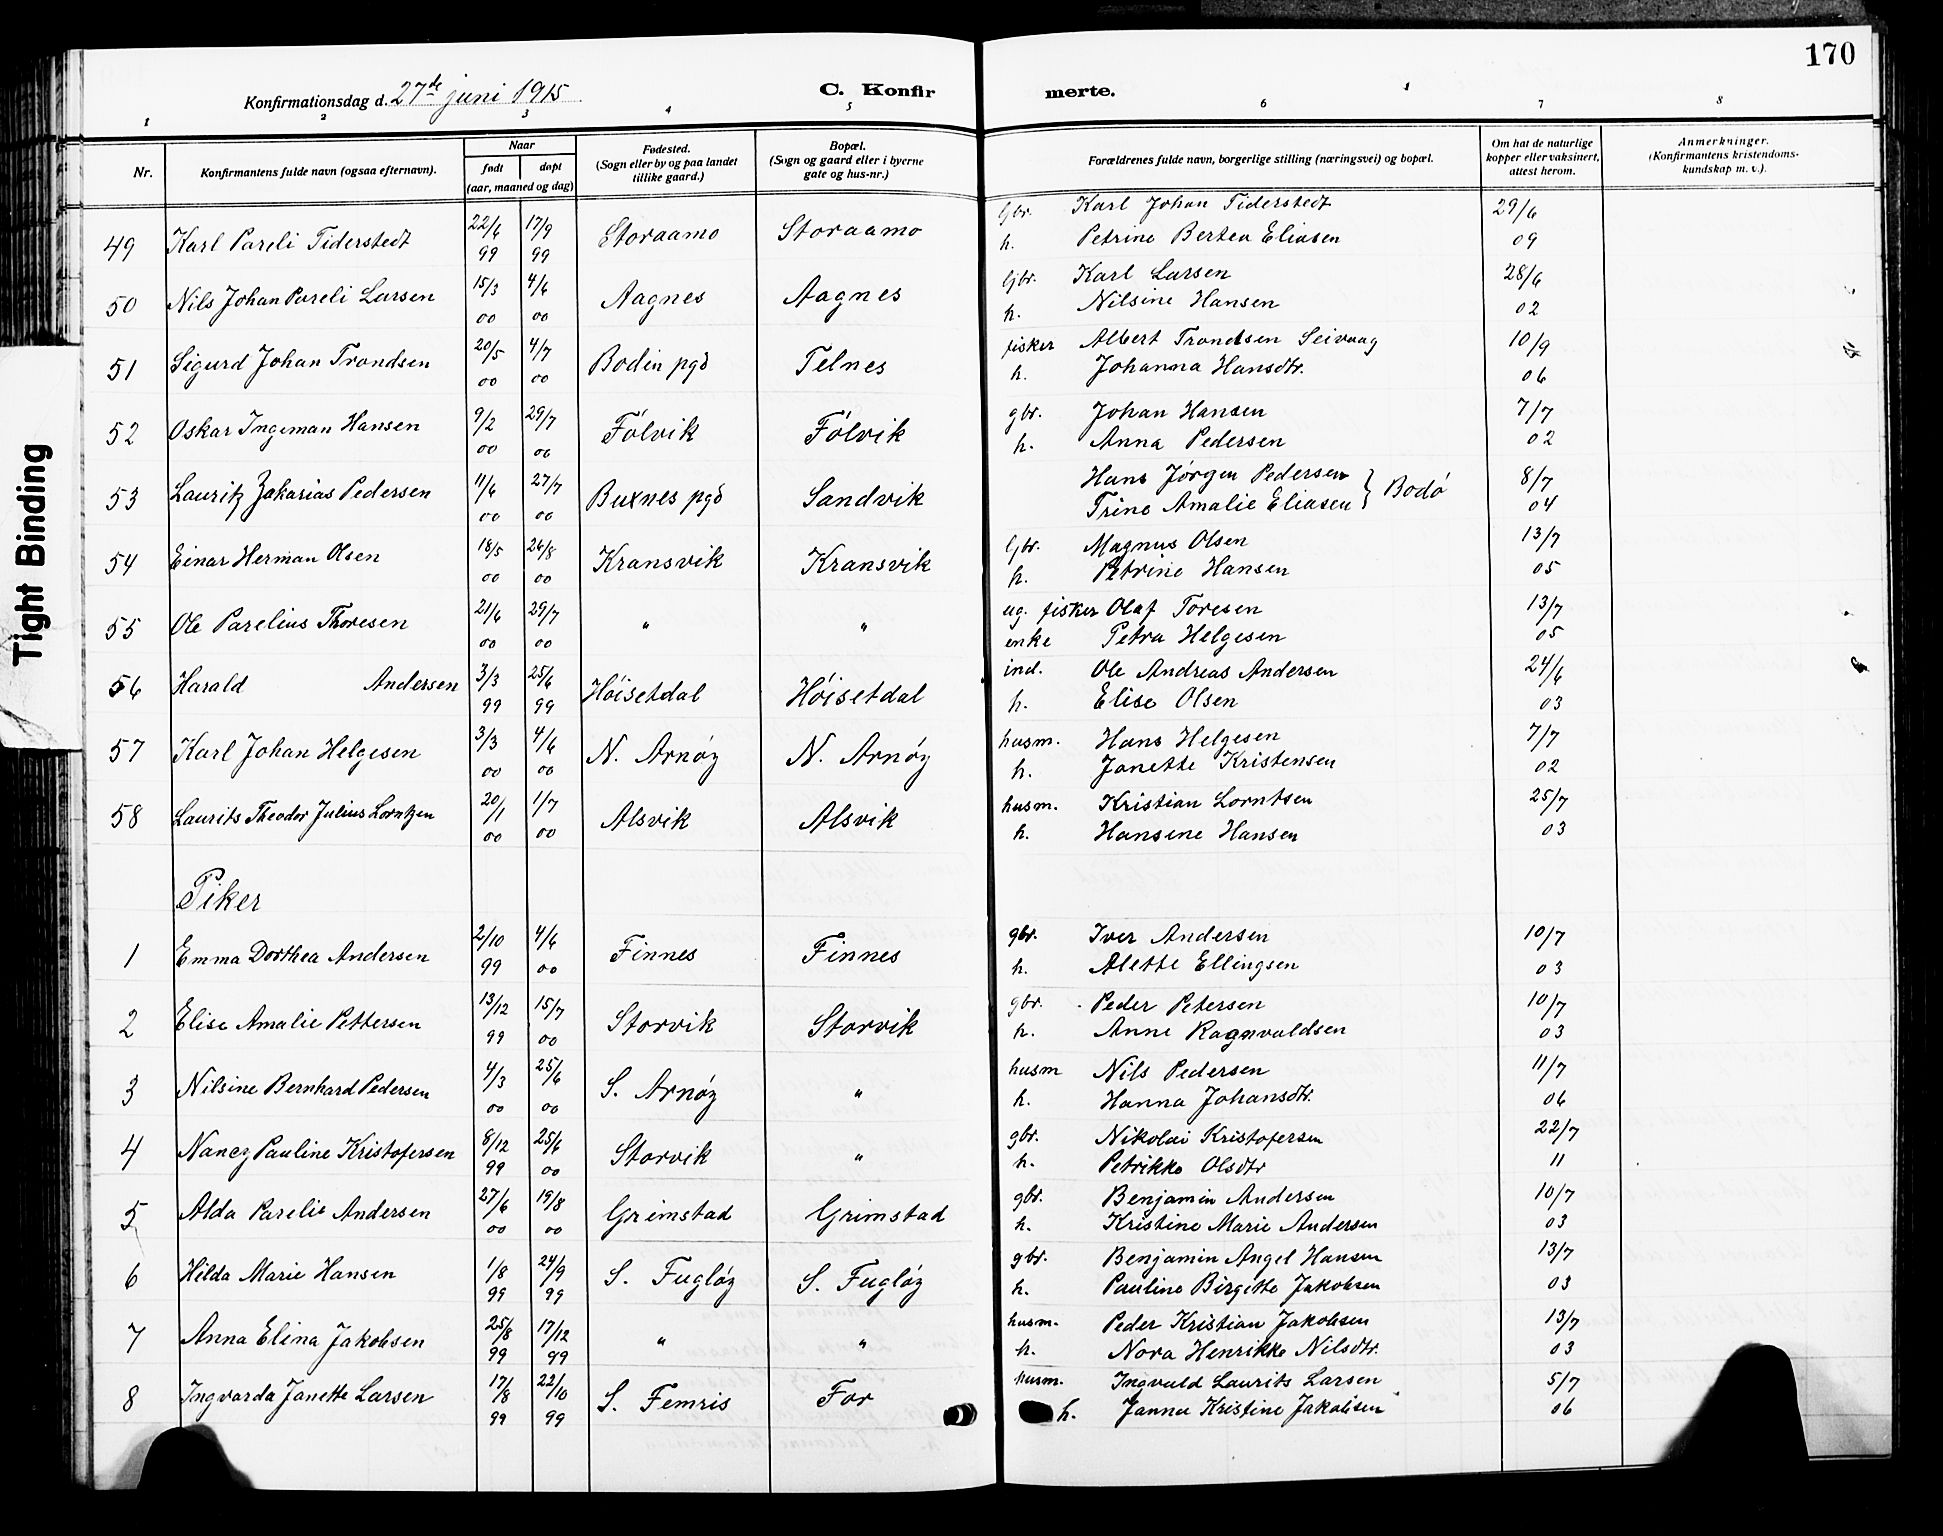 170
Konfirmationsdag d. 27de juni 1915
C. Konfir merte.
1 2 3 4 5 6 7 8
Nr.
Konfirmantens fulde navn (ogsaa efternavn).
Naar
født døpt
(aar, maaned og dag)
Fødested.
(Sogn eller by og paa landet
tillike gaard.)
Bopæl.
(Sogn og gaard eller i byerne
gate og hus-nr.)
Forældrenes fulde navn, borgerlige stilling (næringsvei) og bopæl.
Om hat de naturlige
kopper eller vaksinert,
attest herom.
Anmerkninger.
(Konfirmantens kristendoms-
kundskap m. v.).
49 Karl Pareli Tiderstedt 22/6 99 17/9 99 Storaamo Storaamo
gbr. Karl Johan Tiderstedt 29/6
h. Petrine Bertea Eliasen 09
50 Nils Johan Pareli Larsen 15/3 00 4/6 00 Aagnes Aagnes
gbr. Karl Larsen 28/6
h. Nilsine Hansen 02
51 Sigurd Johan Trondsen 20/5 00 4/7 00 Bodin pgd Telnes
fisker Albert Trondsen Seivaag 10/9
h. Johanna Hansdtr. 06
52 Oskar Ingeman Hansen 9/2 00 29/7 00 Fólvik Fólvik
gbr. Johan Hansen 7/7
h. Anna Pedersen 02
53 Lauritz Zakarias Pedersen 11/6 00 27/7 00 Buxnes pgd Sandvik
Hans Jórgen Pedersen 8/7
Trine Amalie Eliasen } Bodó 04
54 Einar Herman Olsen 18/5 00 26/8 00 Kransvik Kransvik
gbr. Magnus Olsen 13/7
h. Petrine Hansen 05
55 Ole Parelius Thoresen 21/6 00 29/7 00 " "
ug. fisker Olaf Toresen 13/7
enke Petra Helgesen 05
56 Harald Andersen 3/3 99 25/6 99 Hóisetdal Hóisetdal
ind. Ole Andreas Andersen 24/6
h. Elise Olsen 03
57 Karl Johan Helgesen 3/3 00 4/6 00 N. Arnóy N. Arnóy
husm. Hans Helgesen 7/7
h. Janette Kristensen 02
58 Laurits Theodor Julius Lorntzen 20/1 00 1/7 00 Alsvik Alsvik
husm. Kristian Lorntsen 25/7
h. Hansine Hansen 03
Piker
1 Emma Dorthea Andersen 2/10 99 4/6 00 Finnes Finnes
gbr. Iver Andersen 10/7
h. Alette Ellingsen 03
2 Elise Amalie Pettersen 13/12 99 15/7 00 Storvik Storvik
gbr. Peder Petersen 10/7
h. Anne Ragnvaldsen 03
3 Nilsine Bernhard Pedersen 4/3 00 25/6 00 S. Arnóy "
husm Nils Pedersen 11/7
h. Hanna Johansdtr. 06
4 Nancy Pauline Kristofersen 8/12 99 25/6 00 Storvik "
gbr. Nikolai Kristofersen 22/7
h. Petrikke Olsdtr 11
5 Alda Parelie Andersen 27/6 00 19/8 00 Grimstad Grimstad
gbr. Benjamin Andersen 10/7
h. Kristine Marie Andersen 03
6 Hilda Marie Hansen 1/8 99 24/9 99 S. Euglóy S. Fuglóy
gbr. Benjamin Angel Hansen 13/7
h. Pauline Birgitte Jakobsen 03
7 Anna Elina Jakobsen 25/8 99 17/12 99 " "
husm. Peder Kristian Jakobsen 13/7
h. Nora Henrikke Nilsdtr. 03
8 Ingvarda Janette Larsen 17/8 99 22/10 99 S. Femris For
husm. Ingvald Laurits Larsen 5/7
h. Janna Kristine Jakobsen 06
Tight Binding